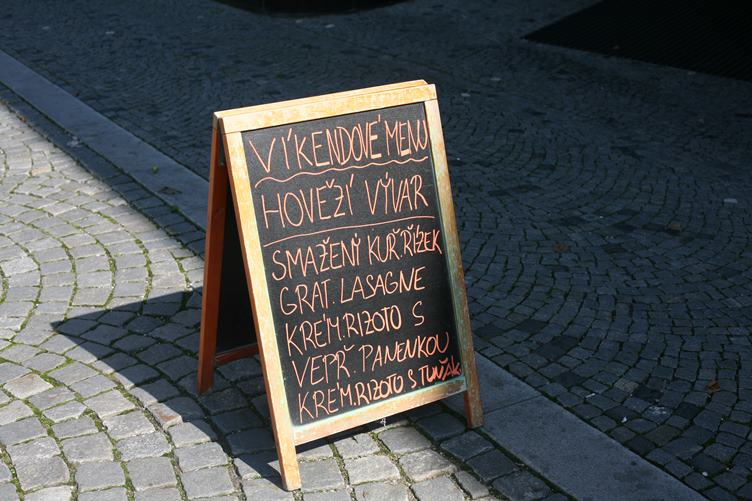 VÍKENDOVÉ MENU
HOVĚŽÍ VÝVAR
SMAŽENÝ KUŘ. ŘÍZEK
GRAT. LASAGNE
KRÉM. RIZOTO S
VEPŘ. PANENKOU
KRÉM. RIZOTO S TUŇÁK